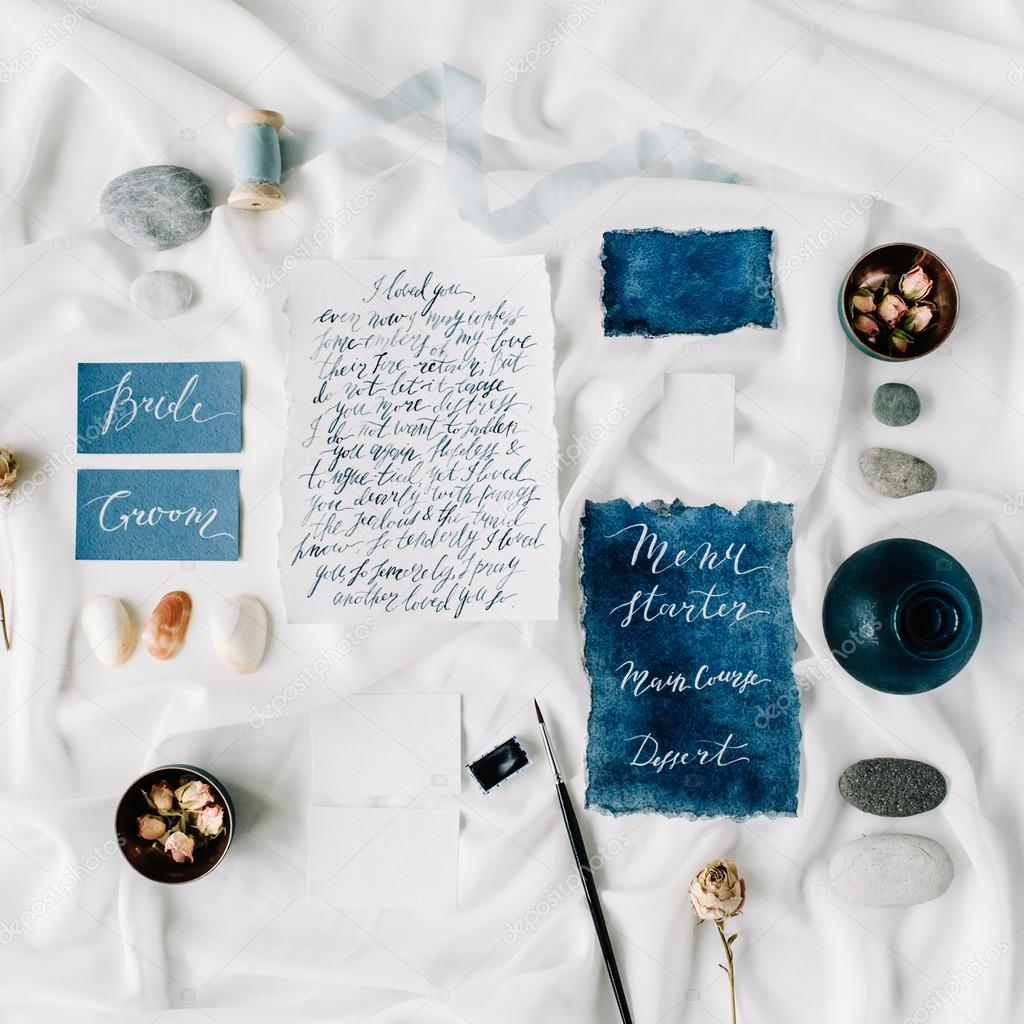 I loved you,
even now I may confess
Some embers of my love
their fire retain; but
do not let it cause
you more distress,
I do not want to sadden
you again. Hopeless &
tongue-tied, yet I loved
you dearly with pangs
the jealous & the timid
know. So tenderly I loved
you, so sincerely, I pray
another loved you so.
Bride
Groom
Menu
Starter
Main Course
Dessert
depositphotos